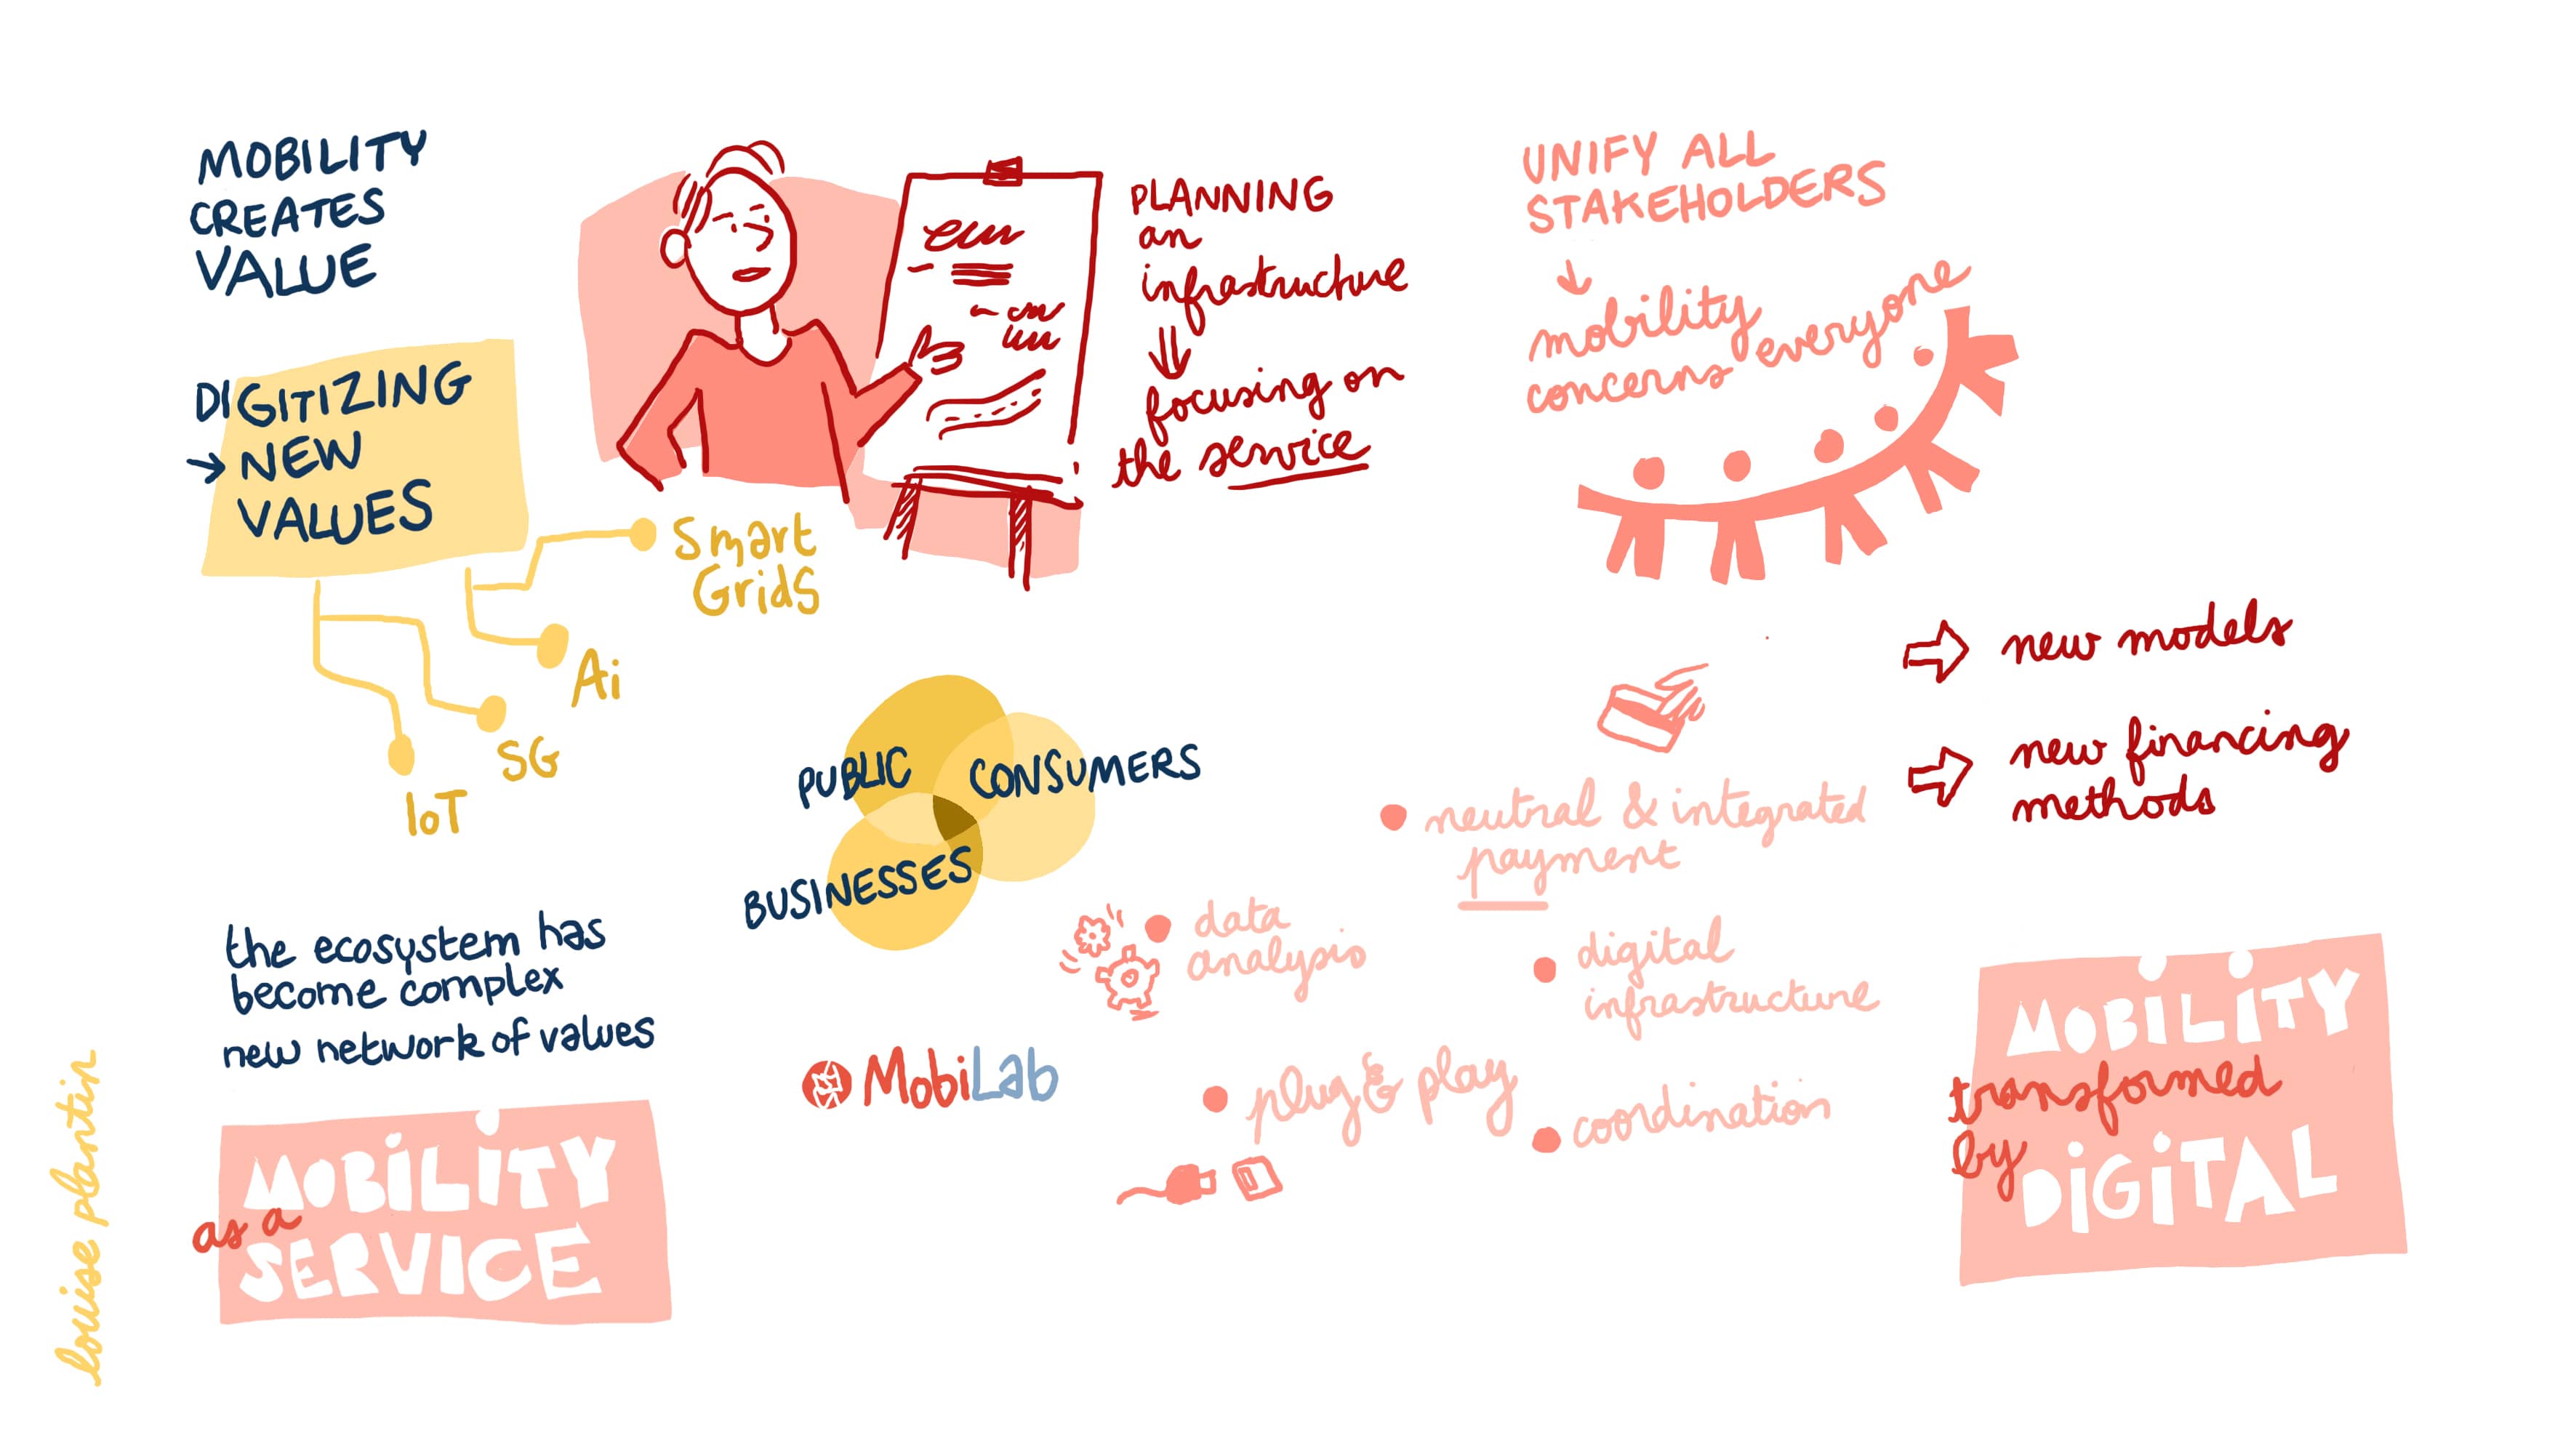 MOBILITY
CREATES
VALUE
DIGITIZING
→ NEW
VALUES
Smart
Grids
Ai
SG
IoT
PLANNING
an
infrastructure
focusing on
the service
UNIFY ALL
STAKEHOLDERS
mobility
concerns everyone
new models
new financing
methods
PUBLIC
CONSUMERS
BUSINESSES
neutral & integrated
payment
data
analysis
digital
infrastructure
plug & play
coordination
the ecosystem has
become complex
new network of values
MobiLab
MOBILITY
as a
SERVICE
MOBILITY
transformed
by
DIGITAL
louise plantin